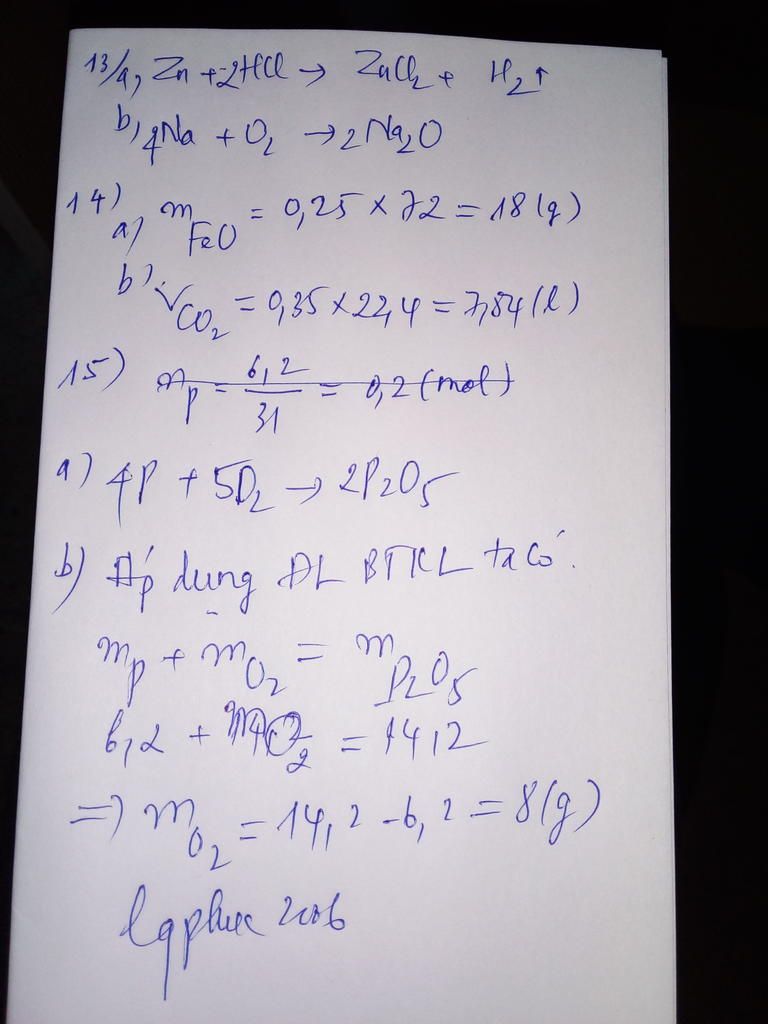 13/a, Zn + 2HCl → ZnCl₂ + H₂↑
b, 4Na + O₂ → 2Na₂O
14)
a, m FeO = 0,25 × 72 = 18 (g)
b, V CO₂ = 0,35 × 22,4 = 7,84 (l)
15) n p = 6,2 / 31 = 0,2 (mol)
a) 4P + 5O₂ → 2P₂O₅
b) Áp dụng ĐL BTKL ta có:
m p + m O₂ = m P₂O₅
6,2 + m O₂ = 14,2
=> m O₂ = 14,2 - 6,2 = 8 (g)
lqphuc 2006